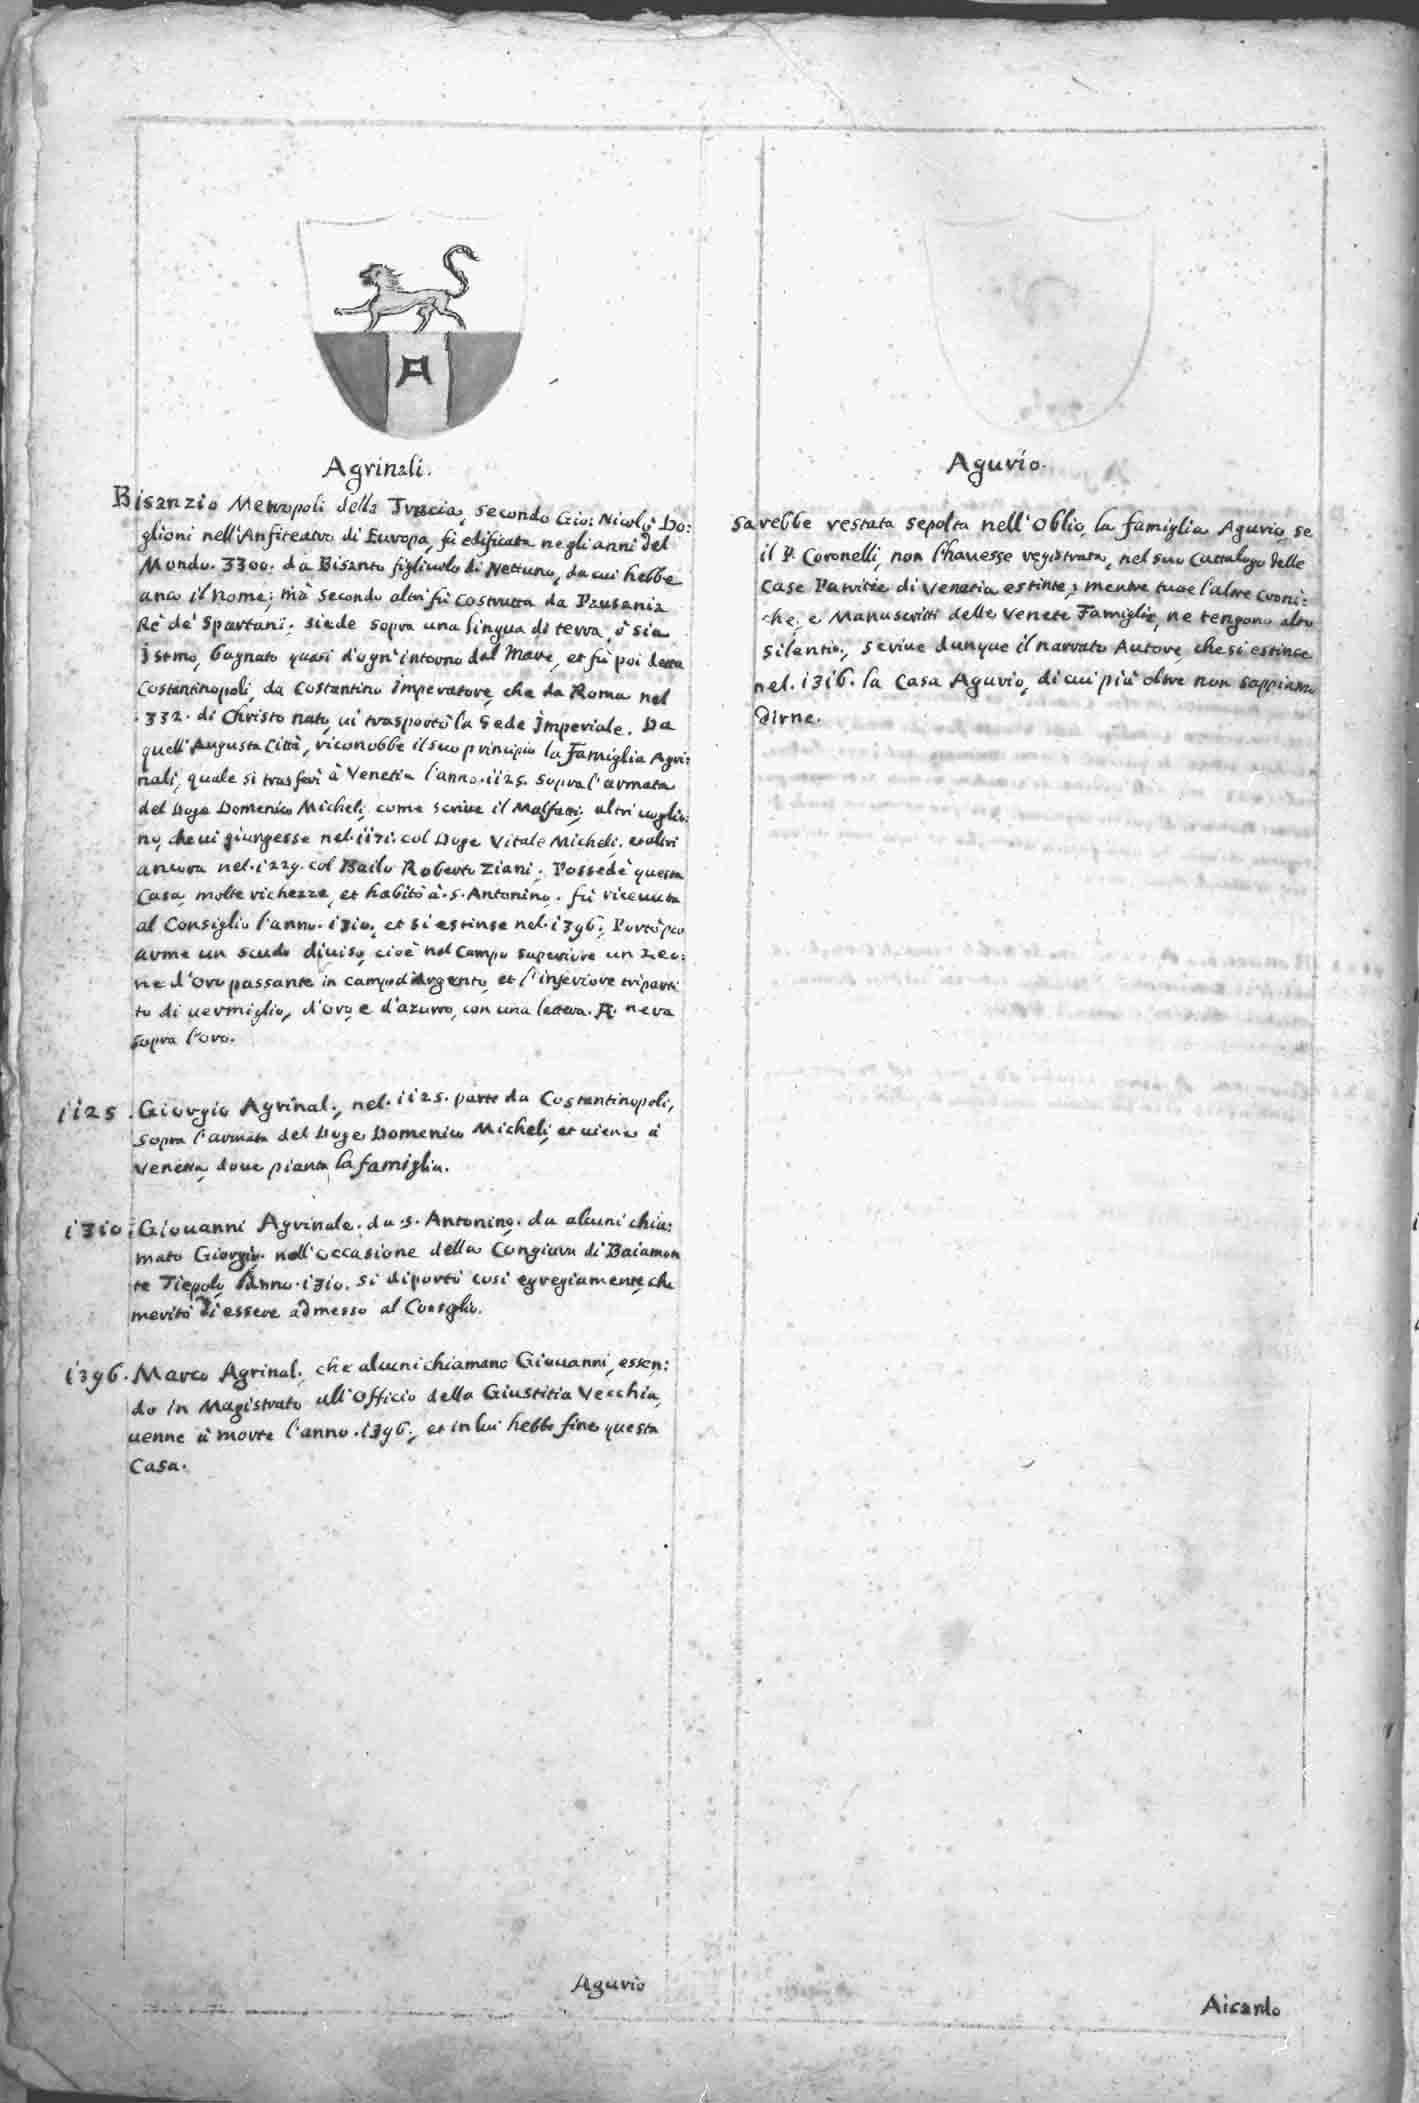 A
Agrinali.
Bisanzio Metropoli della Tracia, secondo Gio: Nicolò Do:
glioni nell'Anfiteatro di Europa, fù edificata negli anni del
Mondo. 3300. da Bisanto figliuolo di Nettuno, da cui hebbe
anco il nome; mà secondo altri fù costrutta da Pausania
Rè de' Spartani. siede sopra una lingua di terra, ò sia
Istmo, bagnato quasi d'ogn'intorno dal Mare, et fù poi detta
Costantinopoli da Costantino Imperatore, che da Roma nel
.332. di Christo nato, ui trasportò la Sede Imperiale. Da
quell'Augusta Città, riconobbe il suo principio la Famiglia Agri:
nali, quale si trasferì à Venetia l'anno.1125. sopra l'armata
del Doge Domenico Micheli, come scriue il Malfatti; altri uoglio:
no, che ui giungesse nel.1171. col Doge Vitale Micheli. et altri
ancora nel.1229. col Bailo Roberto Ziani. Possedè questa
Casa, molte richezze, et habitò à.S.Antonino. fù riceuuta
al Consiglio l'anno.1310, et si estinse nel.1396. Portò per
arme un scudo diuiso, cioè nel Campo superiore un Leo:
ne d'oro passante in campo d'Argento, et l'inferiore triparti
to di uermiglio, d'oro, e d'azurro, con una lettera. A. nera
sopra l'oro.
1125. Giorgio Agrinal., nel.1125. parte da Costantinopoli,
sopra l'armata del Doge Domenico Micheli, et uiene à
Venetia, doue pianta la famiglia.
1310. Giouanni Agrinale. da.S. Antonino. da alcuni chia:
mato Giorgio. nell'occasione della Congiura di Baiamon
te Tiepolo l'anno.1310. si diportò così egregiamente, che
meritò di essere admesso al Consiglio.
1396. Marco Agrinal., che alcuni chiamano Giouanni, essen:
do in Magistrato all'Officio della Giustitia Vecchia,
uenne à morte l'anno.1396., et in lui hebbe fine questa
Casa.
Aguvio
Aguvio.
Sarebbe restata sepolta nell'oblio, la famiglia Aguvio, se
il P. Coronelli, non l'hauesse registrata, nel suo Cattalogo delle
Case Patritie di Venetia estinte, mentre tutte l'altre Croni:
che, e Manuscritti delle Venete Famiglie, ne tengono alto
silentio. scriue dunque il narrato Autore, che si estinse
nel.1316. la Casa Aguvio, di cui più oltre non sappiamo
dirne.
Aicardo